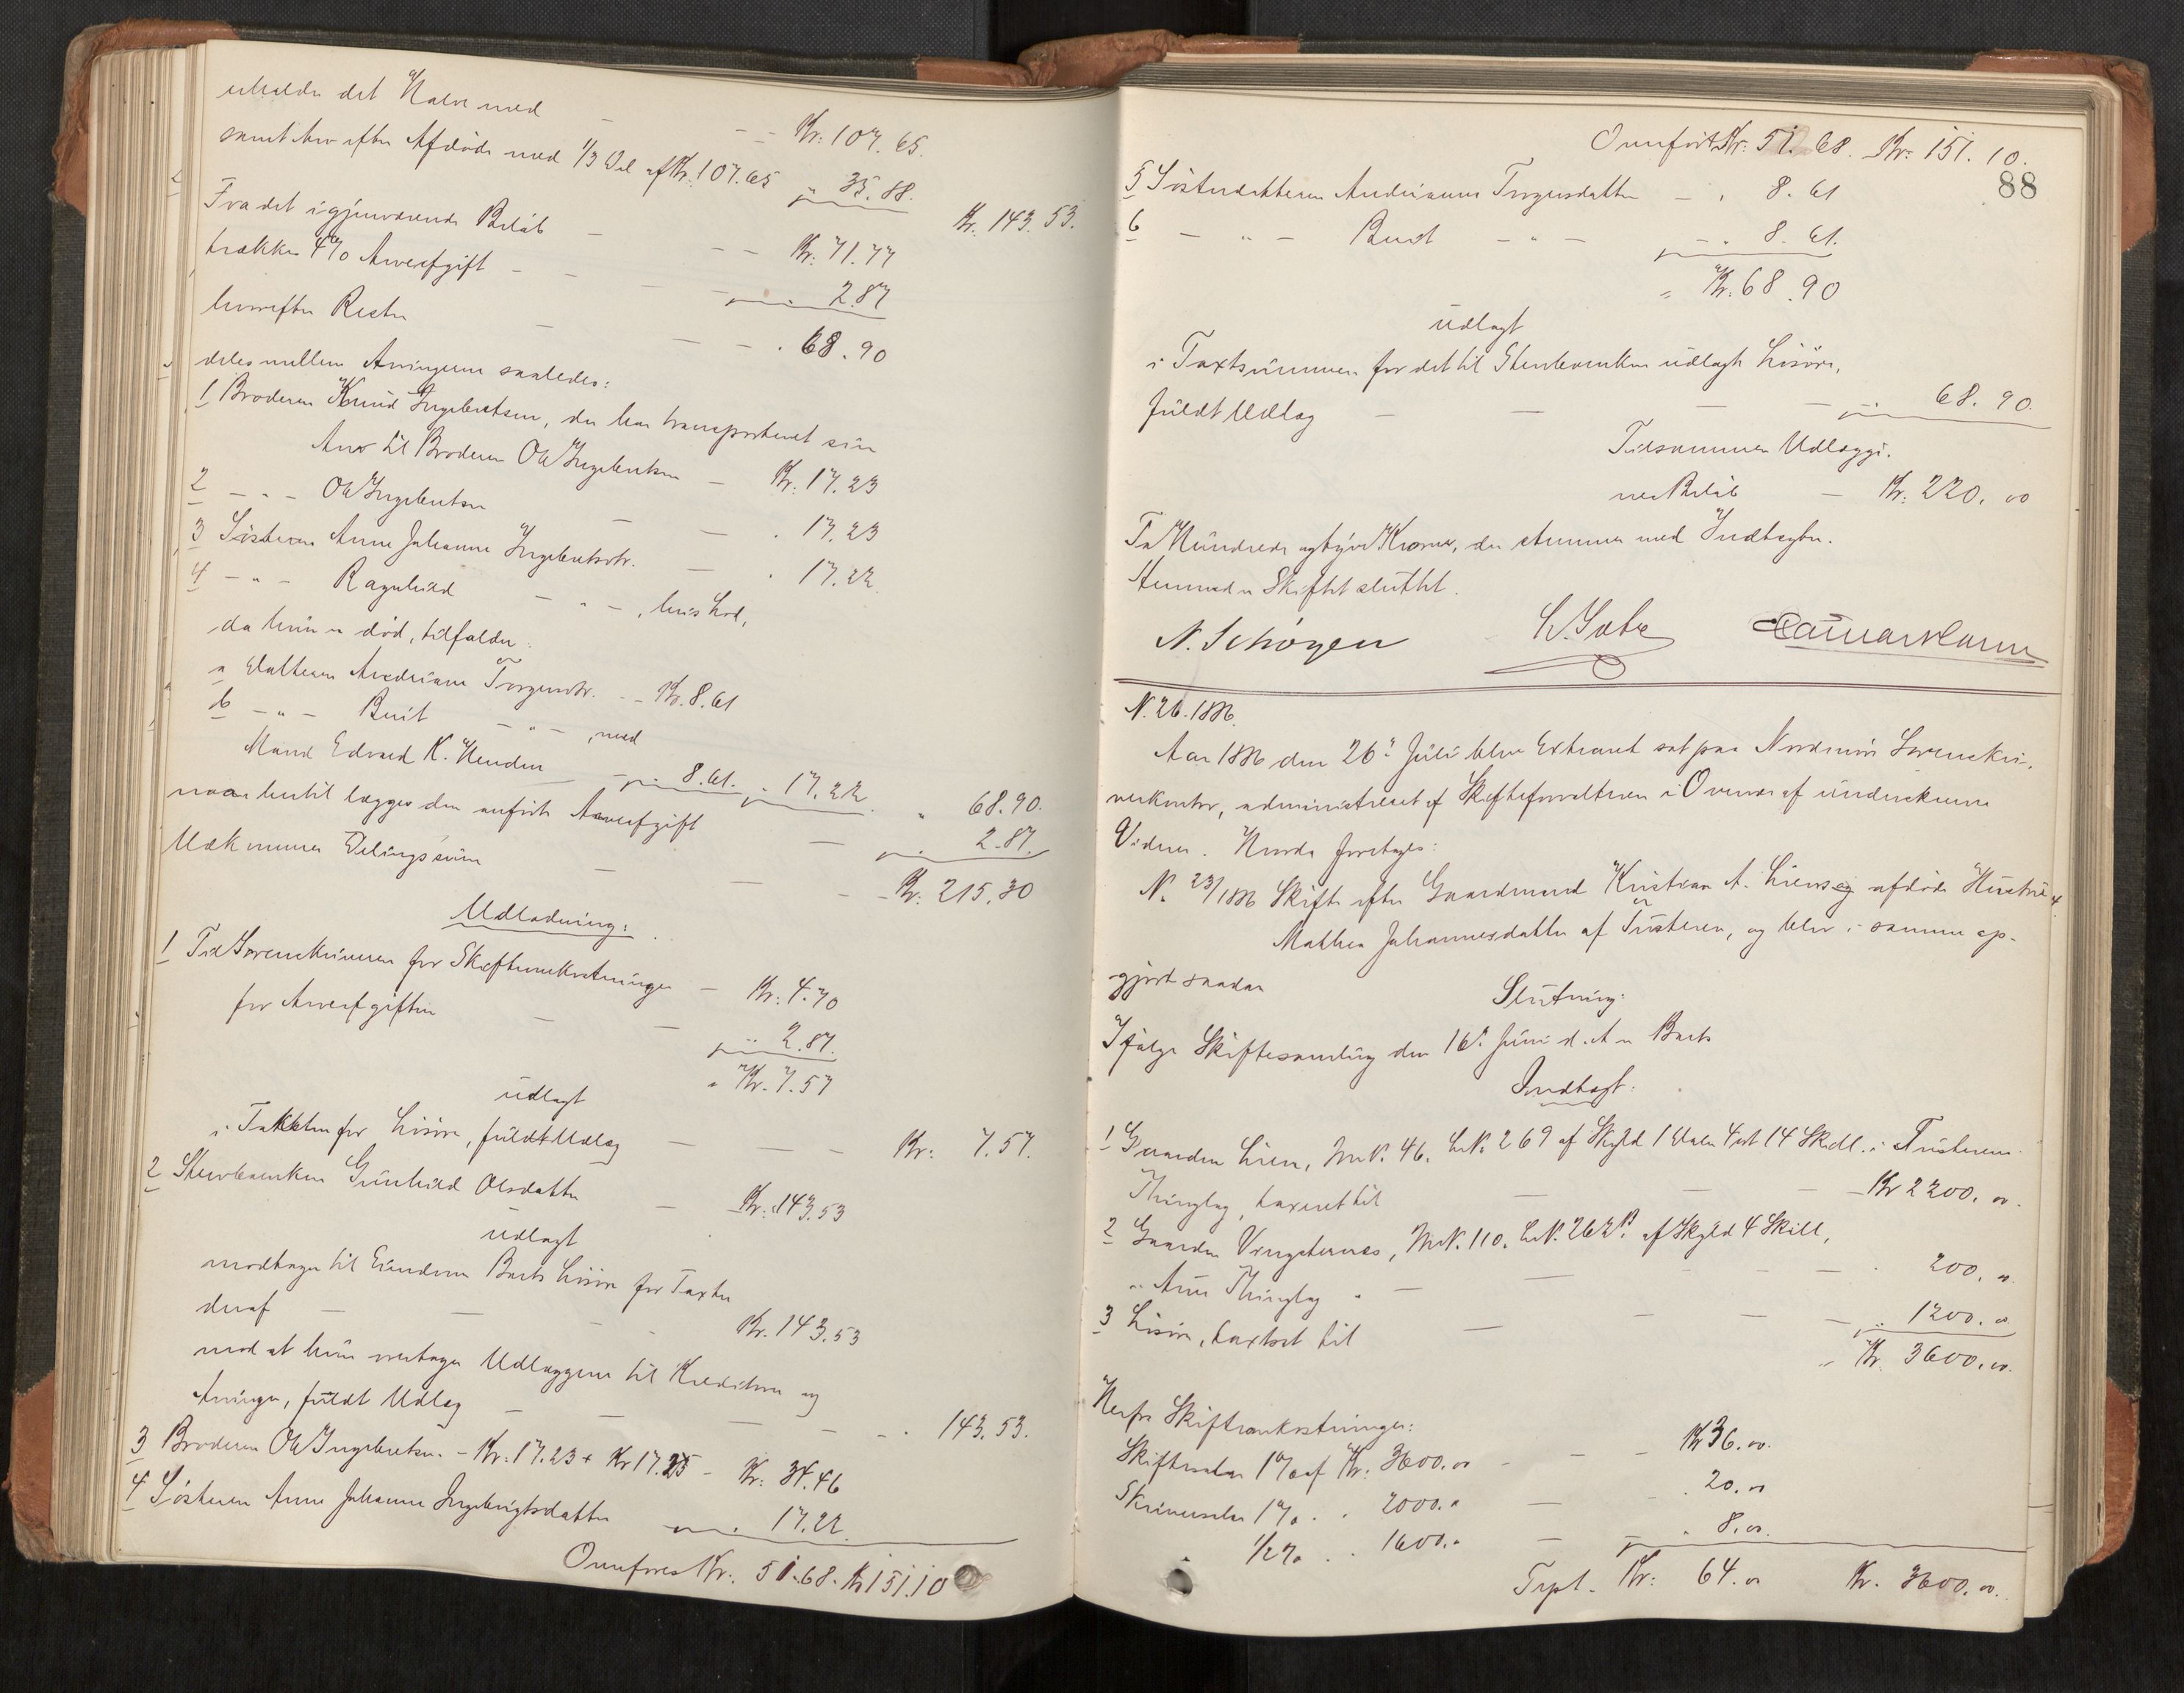 erholder det Halve med - - - Kr: 107.65.
samt Arv efter Afdøde med 1/3 Del af Kr: 107.65 " 35.88.
Kr. 143.53.
Fra det igjenværende Beløb - - - Kr. 71.77
trækkes 4% Arveafgift - - - - 2.87
hvorefter Resten - - - . 68.90
deles mellem Arvingerne saaledes:
1 Broderen Knud Ingebretsen, der har transporteret sin
Arv til Broderen Ole Ingebretsen - Kr. 17.23
2 - " - Ole Ingebretsen - - . 17.23
3 Søsteren Anne Johanne Ingebretsdtr. - . 17.22
4 - " - Ragnhild - " - , hvis Lod,
da hun er død, tilfalder:
a Datteren Andriane Torgersdtr. - - Kr. 8.61
b - " - Berit - " - , med
Mand Edvard K. Henden - " 8.61. . 17.22
" 68.90.
naar hertil lægges den anførte Arveafgift - " 2.87.
Udkommer Delingssum - - - Kr. 215.30
Udlodning:
1 Til Sorenskriveren for Skifteomkostninger - Kr. 4.70
for Arveafgiften - - " 2.87.
" Kr. 7.57
udlagt
i Taksten for Løsøre, fuldt Udlæg - - - Kr: 7.57.
2 Stervboenken Gunhild Olsdatter - Kr: 143.53
udlagt
modtager til Eiendom Boets Løsøre for Taxten
deraf - - - - Kr. 143.53
mod at hun overtager Udlæggene til Kreditorer og
Arvinger, fuldt Udlæg - - - - . 143.53.
3 Broderen Ole Ingebretsen. - Kr: 17.23 + Kr 17.23 - Kr: 34.46
4 Søsteren Anne Johanne Ingebrigtsdatter " . 17.22.
Overføres Kr. 51.68. Kr 151.10
Overført Kr: 51.68. Kr. 151.10.
88
5 Søsterdatteren Andrianne Torgersdatter - . 8.61
6 - " - Berit - " - - . 8.61.
" Kr. 68.90
udlagt
i Taxtsummen for det til Stervboenken udlagte Løsøre,
fuldt Udlæg - - - " 68.90.
Tilsammen Udlæggenes
Beløb - Kr. 220.00
To Hundrede og tyve Kroner, der stemmer med Indtægten.
Hermed er Skiftet sluttet.
N. Schøyen
N. 26. 1886.
Aar 1886 den 26de Juli blev Extraret sat paa Nordmøre Sorenskri-
verkontor, administreret af Skifteforvalteren i Overvær af underskrevne
Vidner. Hvorda foretoges:
N. 23/1886 Skifte efter Gaardmand Kristian A. Liens afdøde Hustru
Mathea Johannesdatter af Tusteren, og blev i samme op-
gjort saadan
Slutning:
Ifølge Skiftesamling den 16de Juni d. A. er Boets
Indtægt:
1 Gaarden Lien, M.N. 46. L.N. 269 af Skyld 1 Daler 4 ort 14 Skill. i Tusterens
Thinglag, taxeret til - - - Kr 2200.00.
2 Gaarden Vingsternes, M.N. 110. L.N. 262B. af Skyld 4 Skill,
i Aure Thinglag " - - - - . 200.00.
3 Løsøre, taxtert til - - - - " 1200.00
" Kr. 3600.00.
Herfra Skifteomkostninger:
Skiftesalær 1% af Kr: 3600.00 - - - Kr 36.00.
Skriversalær 1% . . 2000.00 - - . 20.00
" 1/2% . . 1600.00 - " . 8.00.
Trpt. Kr: 64.00 Kr. 3600.00.